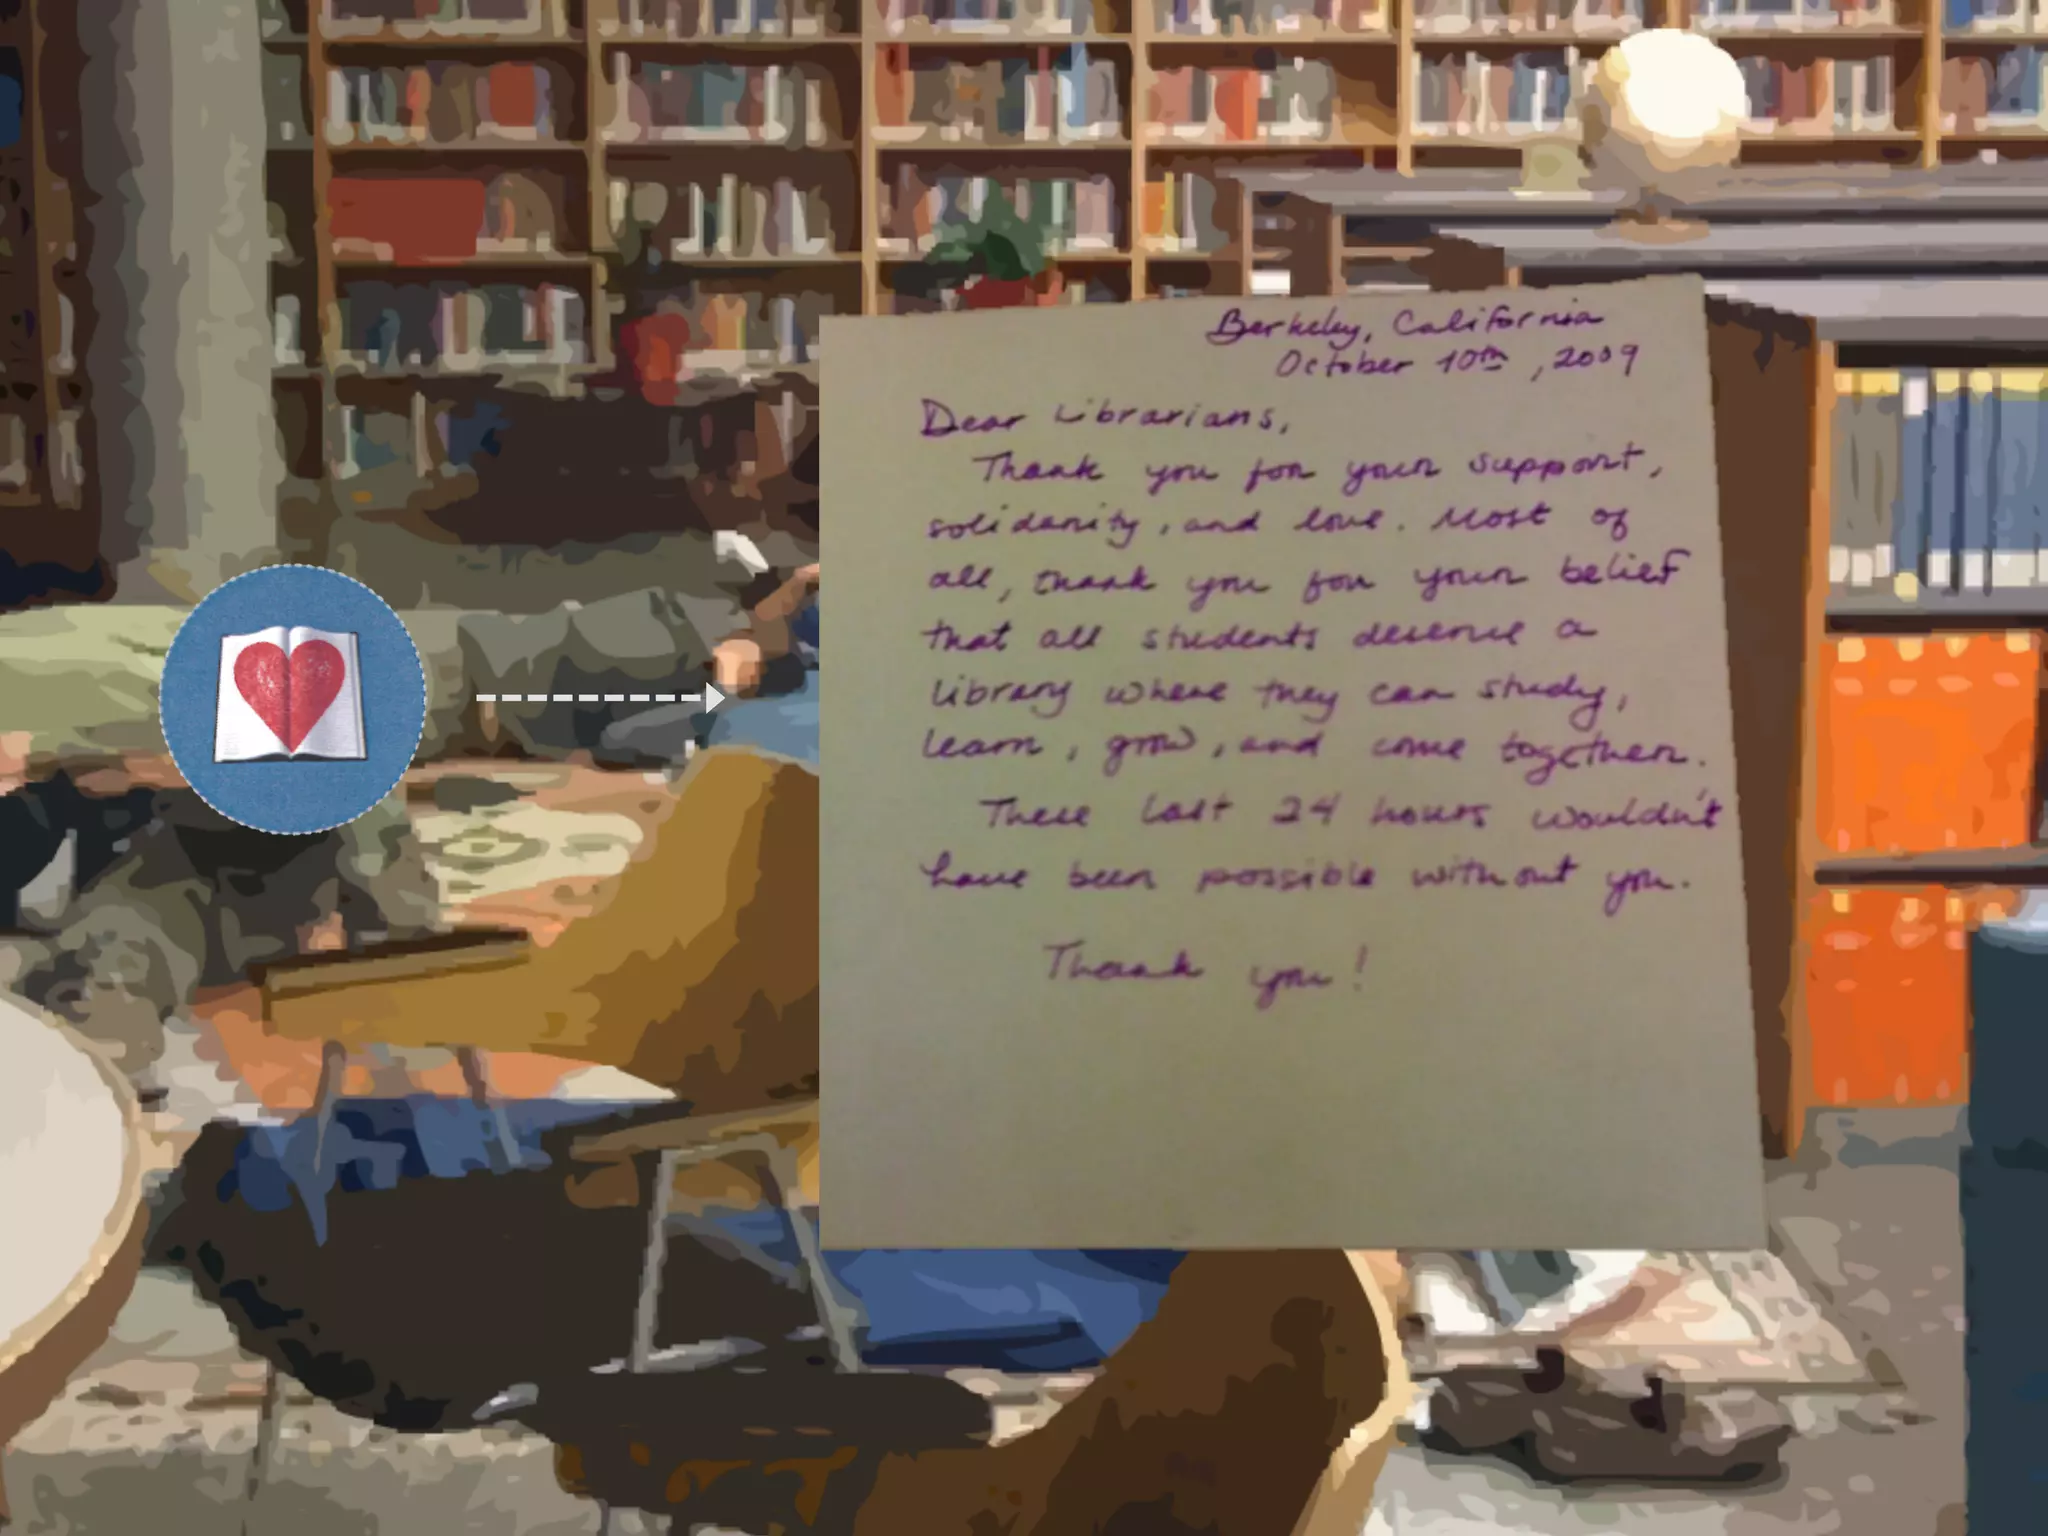 Berkeley, California
October 10th, 2009
Dear Librarians,
Thank you for your support,
solidarity, and love. Most of
all, thank you for your belief
that all students deserve a
library where they can study,
learn, grow, and come together.
These last 24 hours wouldn't
have been possible without you.
Thank you!